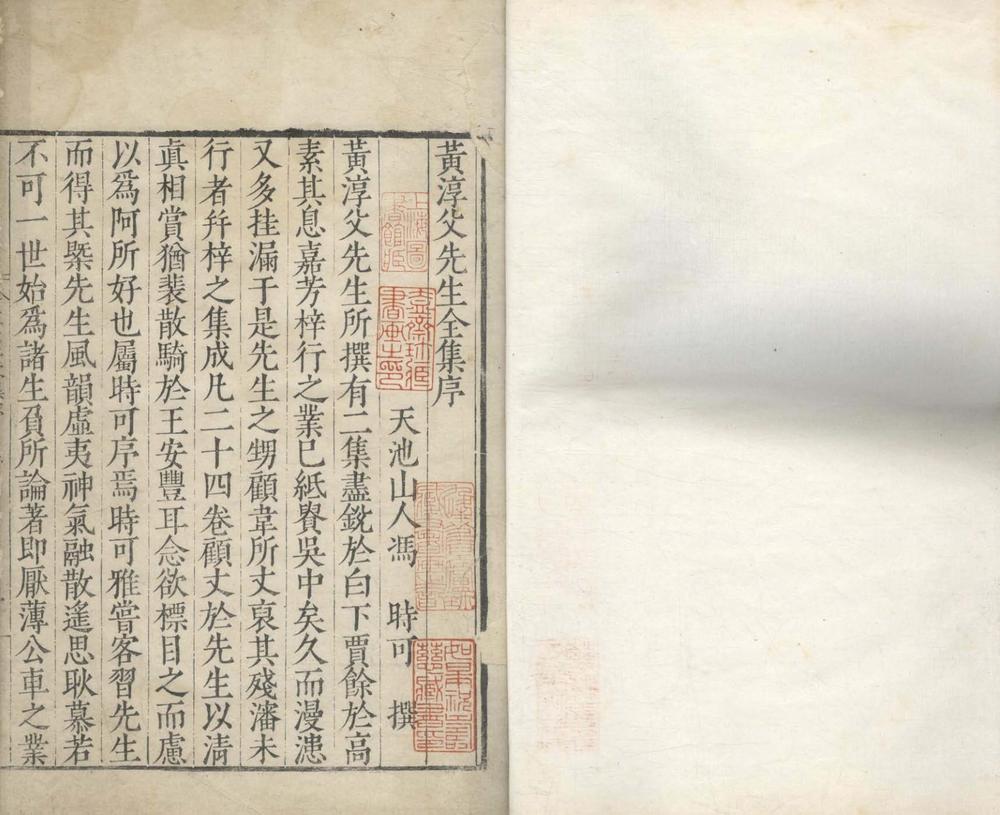 黃淳父先生全集序
天池山人馮 時可 撰
黃淳父先生所撰有二集盡銳於白下賈餘於高
素其息嘉芳梓行之業已紙貴吳中矣久而漫漶
又多挂漏于是先生之甥顧韋所丈裒其殘瀋未
行者幷梓之集成凡二十四卷顧丈於先生以淸
眞相賞猶裴散騎於王安豐耳念欲標目之而慮
以爲阿所好也屬時可序焉時可雅嘗客習先生
而得其槩先生風韻虛夷神氣融散遙思耿慕若
不可一世始爲諸生負所論著即厭薄公車之業
上海圖書館臧